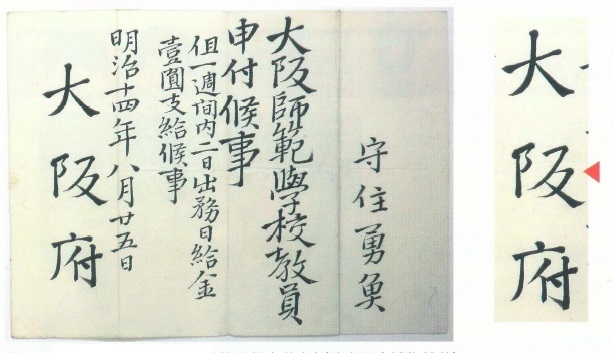 守住勇魚
大阪師範學校教員
申付候事
但一週間内二日出務日給金
壹圓支給候事
明治十四年八月廿五日
大阪府
大阪府